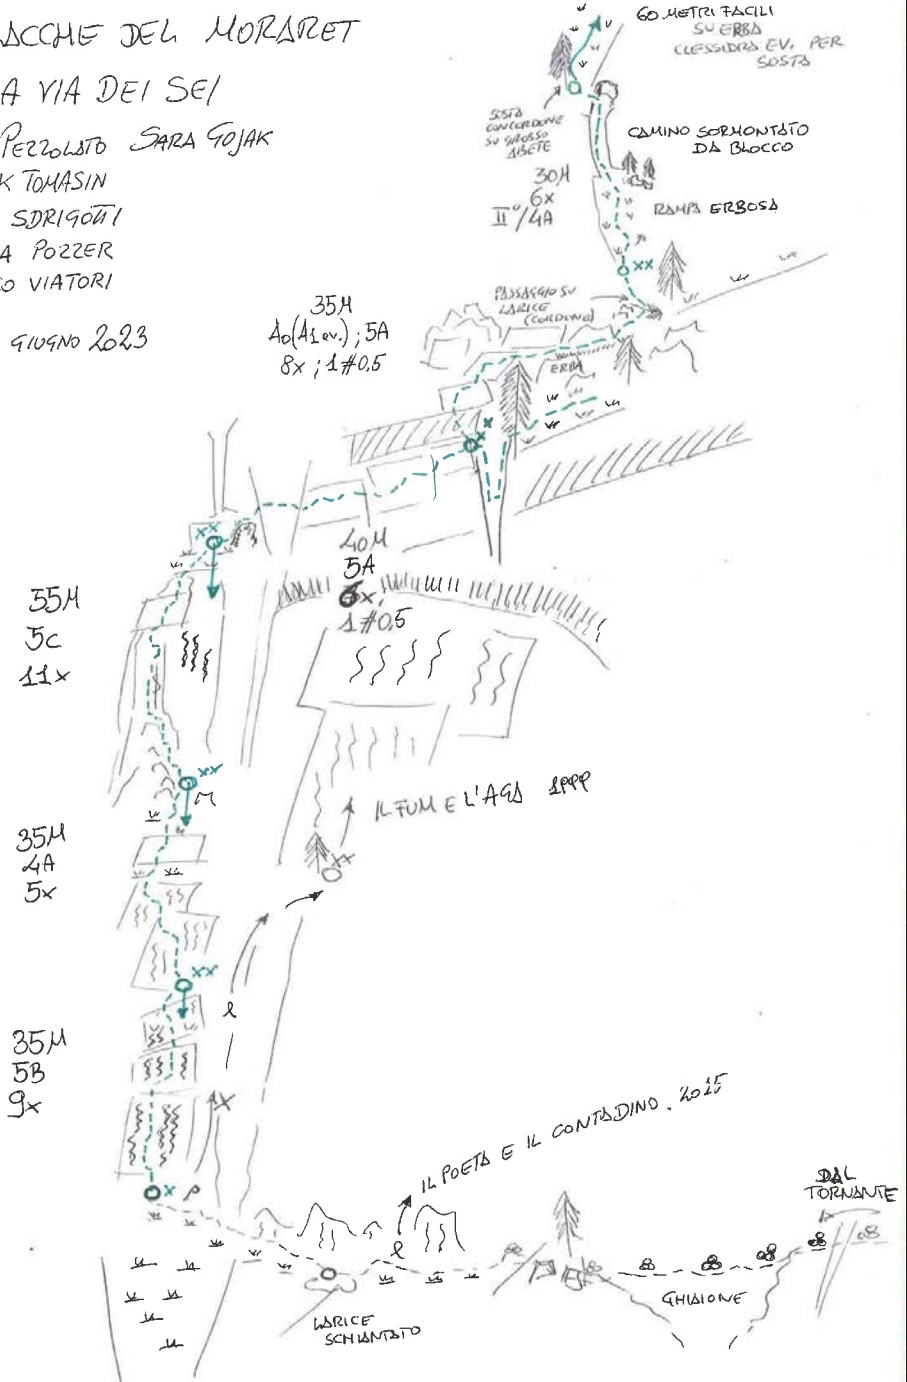 ACCHE DEL MORARET
A VIA DEI SEI
PEZZOLATO SARA GOJAK
K TOMASIN
SDRIGOTTI
A POZZER
O VIATORI
GIUGNO 2023
60 METRI FACILI
SU ERBA
CLESSIDRA EV. PER
SOSTA
SOSTA
CON CORDONE
SU GROSSO
ABETE
CAMINO SORMONTATO
DA BLOCCO
30M
6x
II°/4A
RAMPA ERBOSA
XX
PASSAGGIO SU
LARICE
(CORDONE)
35M
A0(A1 ev.); 5A
8x; 1#0,5
ERBA
X
X
XX
40M
5A
6x,
1#0,5
55M
5C
11x
XX
IL FUM E L'AGA 1999
35M
4A
5x
XX
XX
35M
5B
9x
X
X
IL POETA E IL CONTADINO. 2015
DAL
TORNANTE
GHIAIONE
LARICE
SCHIANTATO